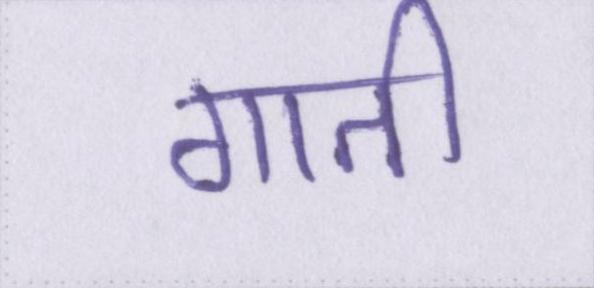 गाती